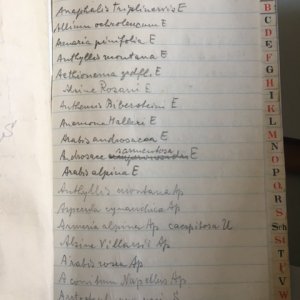 Anaphalis triplinervis E
Allium ochroleucum E
Arenaria pinifolia E
Anthyllis montana E
Aethionema E
Alsine Rosani E
Anthemis Bibersteini E
Anemona Halleri E
Arabis androsacea E
sarmentosa
Androsace E
Arabis alpina E
Anthyllis montana Ap
Asperula cynanchica Ap
Armeria alpina Ap caespitosa U
Alsine Villarsii Ap
Arabis rosea Ap
Aconitum Napellus Ap
B
C
D
E
F
G
H
I
K
L
M
N
O
P
Q
R
S
Sch
St
T
U
V
W